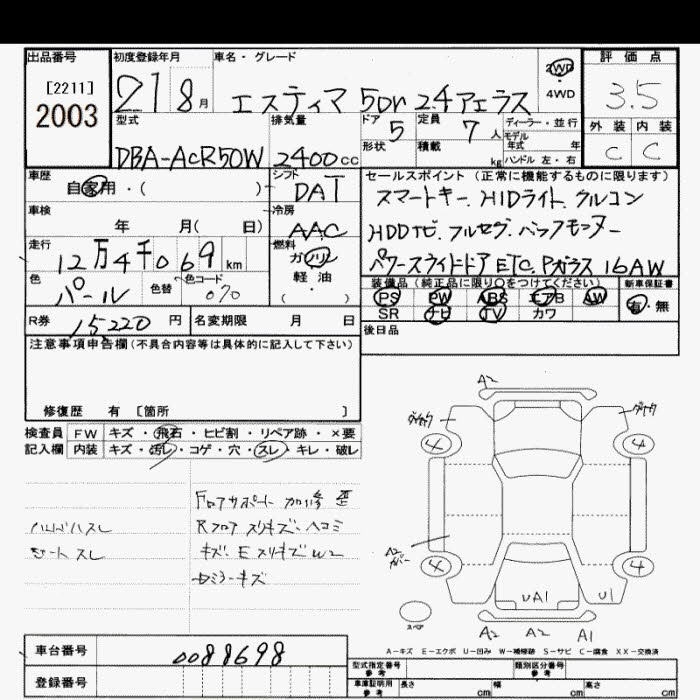 出品番号 初度登録年月 車名・グレード 評価点
[2211]
2003
21 8月 エスティマ 5Dr 2.4アエラス 2WD 4WD 3.5
型式 排気量 ドア 定員 ディーラー・並行 外装 内装
DBA-ACR50W 2400cc 5 7人 モデル年式 年 C C
形状 積載 kg ハンドル 左・右
車歴 シフト セールスポイント (正常に機能するものに限ります)
自家用・( ) DAT スマートキー、HIDライト、クルコン
車検 冷房 HDDナビ、フルセグ、バックモニター
年 月( 日) AAC
走行 燃料 パワースライドドア ETC、Pガラス 16AW
12万4千069km ガソリン
色 色替 色コード 軽油 装備品(純正品に限り○をつけてください) 新車保証書
パール 070 ・( ) PS PW ABS エアB AW 有・無
SR ナビ TV カワ
R券 15220円 名変期限 月 日 後日品
注意事項申告欄(不具合内容等は具体的に記入して下さい)
修復歴 有 [箇所 ]
検査員 FW キズ・飛石・ヒビ割・リペア跡・×要
記入欄 内装 キズ・汚レ・コゲ・穴・スレ・キレ・破レ
Fロアサポート 加修 歪
ハンドルスレ Rフロア スリキズ・ヘコミ
シートスレ キズ・E スリキズ W2
ミラーキズ
A2
4 4
A2
カバー
4 4
UA1 U1
スペア
A2 A2 A1
A-キズ E-エクボ U-凹み W-補修跡 S-サビ C-腐食 XX-交換済
車台番号 0088698
登録番号
型式指定番号 参考 類別区分番号 参考
車庫証明用 参考 長さ cm 幅 cm 高さ cm